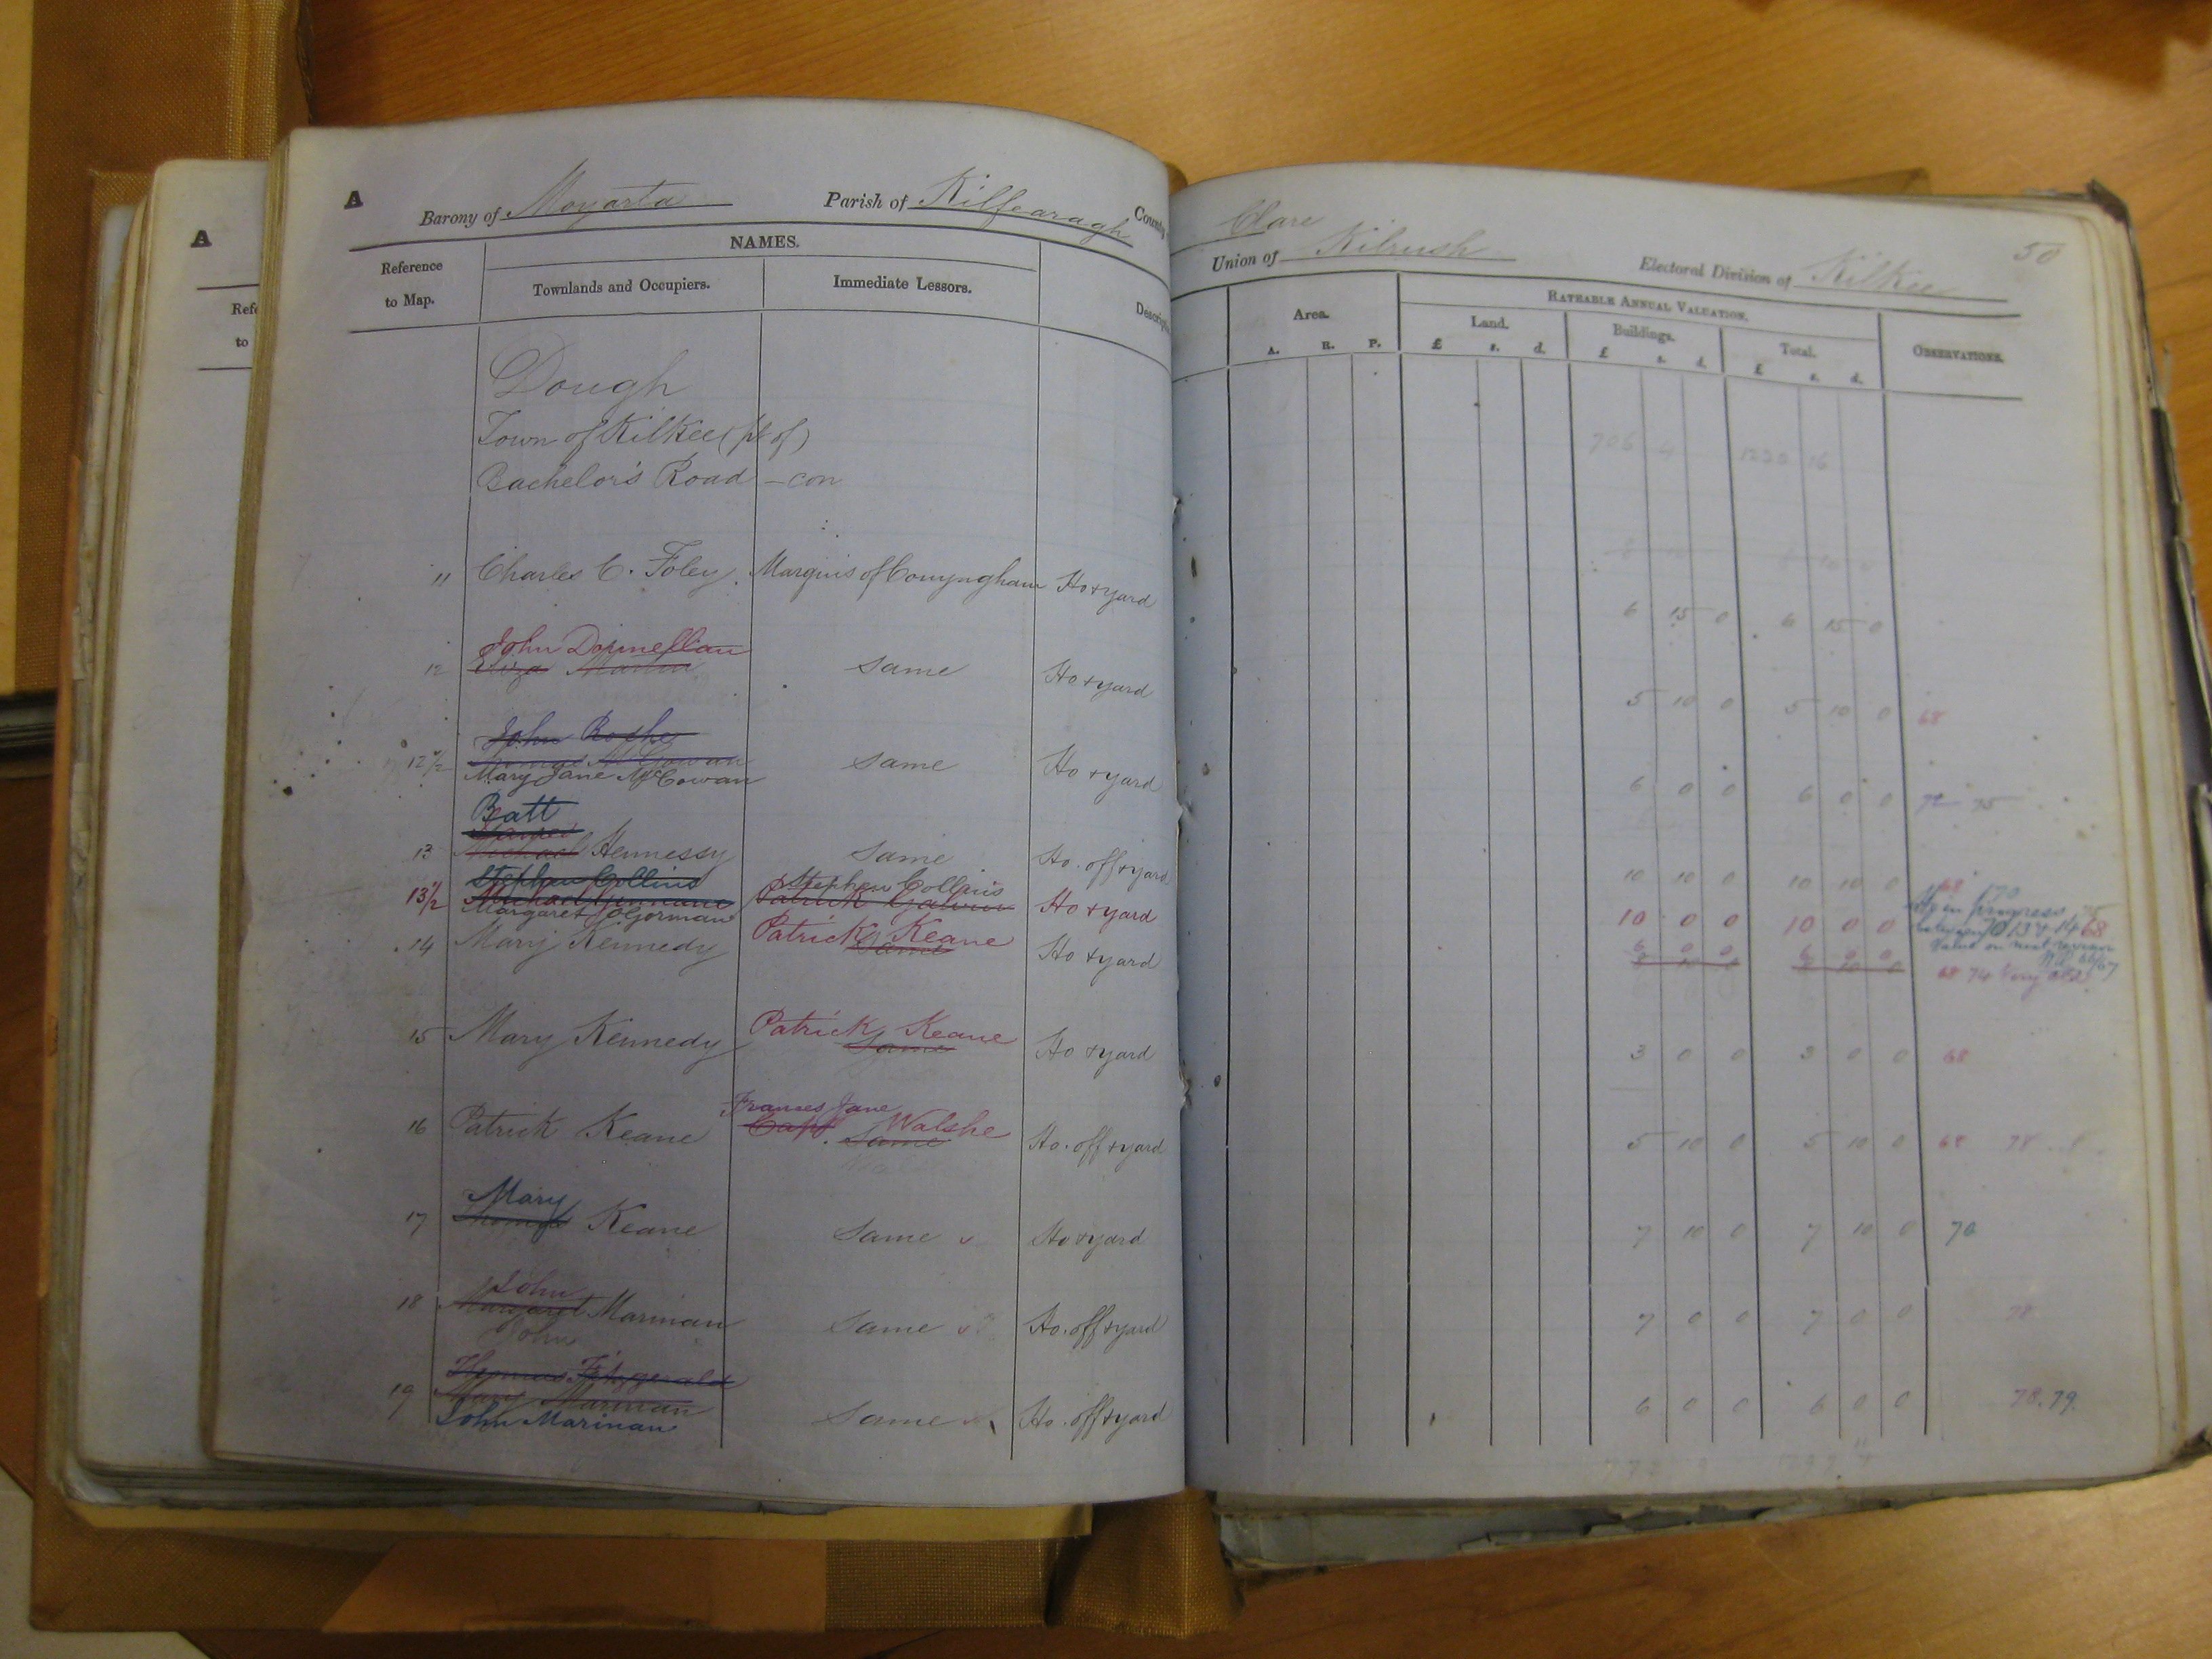 A
Refe
to
A
Barony of Moyarta Parish of Kilfearagh County
Clare
Union of Kilrush Electoral Division of Kilkee 50
Reference to Map. NAMES. Townlands and Occupiers. Immediate Lessors. Descripti
Area. A. R. P. RATEABLE ANNUAL VALUATION. Land. £ s. d. Buildings. £ s. d. Total. £ s. d. OBSERVATIONS.
Dough
Town of Kilkee (pt of) 706 4 1220 16
Bachelor's Road - con
11 Charles C. Foley Marquis of Conyngham Ho & yard 6 15 0 6 15 0
John Donnellan
12 Eliza Martin same Ho & yard 5 10 0 5 10 0 68
John Roche
12 1/2 Thomas McGowan same Ho & yard 6 0 0 6 0 0 72 75
Mary Jane McGowan
Batt
13 Michael Hennessy same Ho. off & yard 10 10 0 10 10 0 68 70
Stephen Collins Stephen Collins
13 1/2 Patrick Galvin Ho & yard 10 0 0 10 0 0 Ho in progress 75
Margaret O'Gorman between 13 & 14 68
Patrick Keane Value on next revision
14 Mary Kennedy same Ho & yard 6 0 0 6 0 0 66/67
68 74 Very old
Patrick Keane
15 Mary Kennedy Same Ho & yard 3 0 0 3 0 0 68
Frances Jane
16 Patrick Keane Capt Walshe Same Ho. off & yard 5 10 0 5 10 0 68 78
Mary
17 Thomas Keane Same Ho & yard 7 10 0 7 10 0 70
John
18 Margaret Marinan Same Ho. off & yard 7 0 0 7 0 0 78
John
Thomas Fitzgerald
19 Mary Marinan Same Ho. off & yard 6 0 0 6 0 0 78.79.
John Marinan